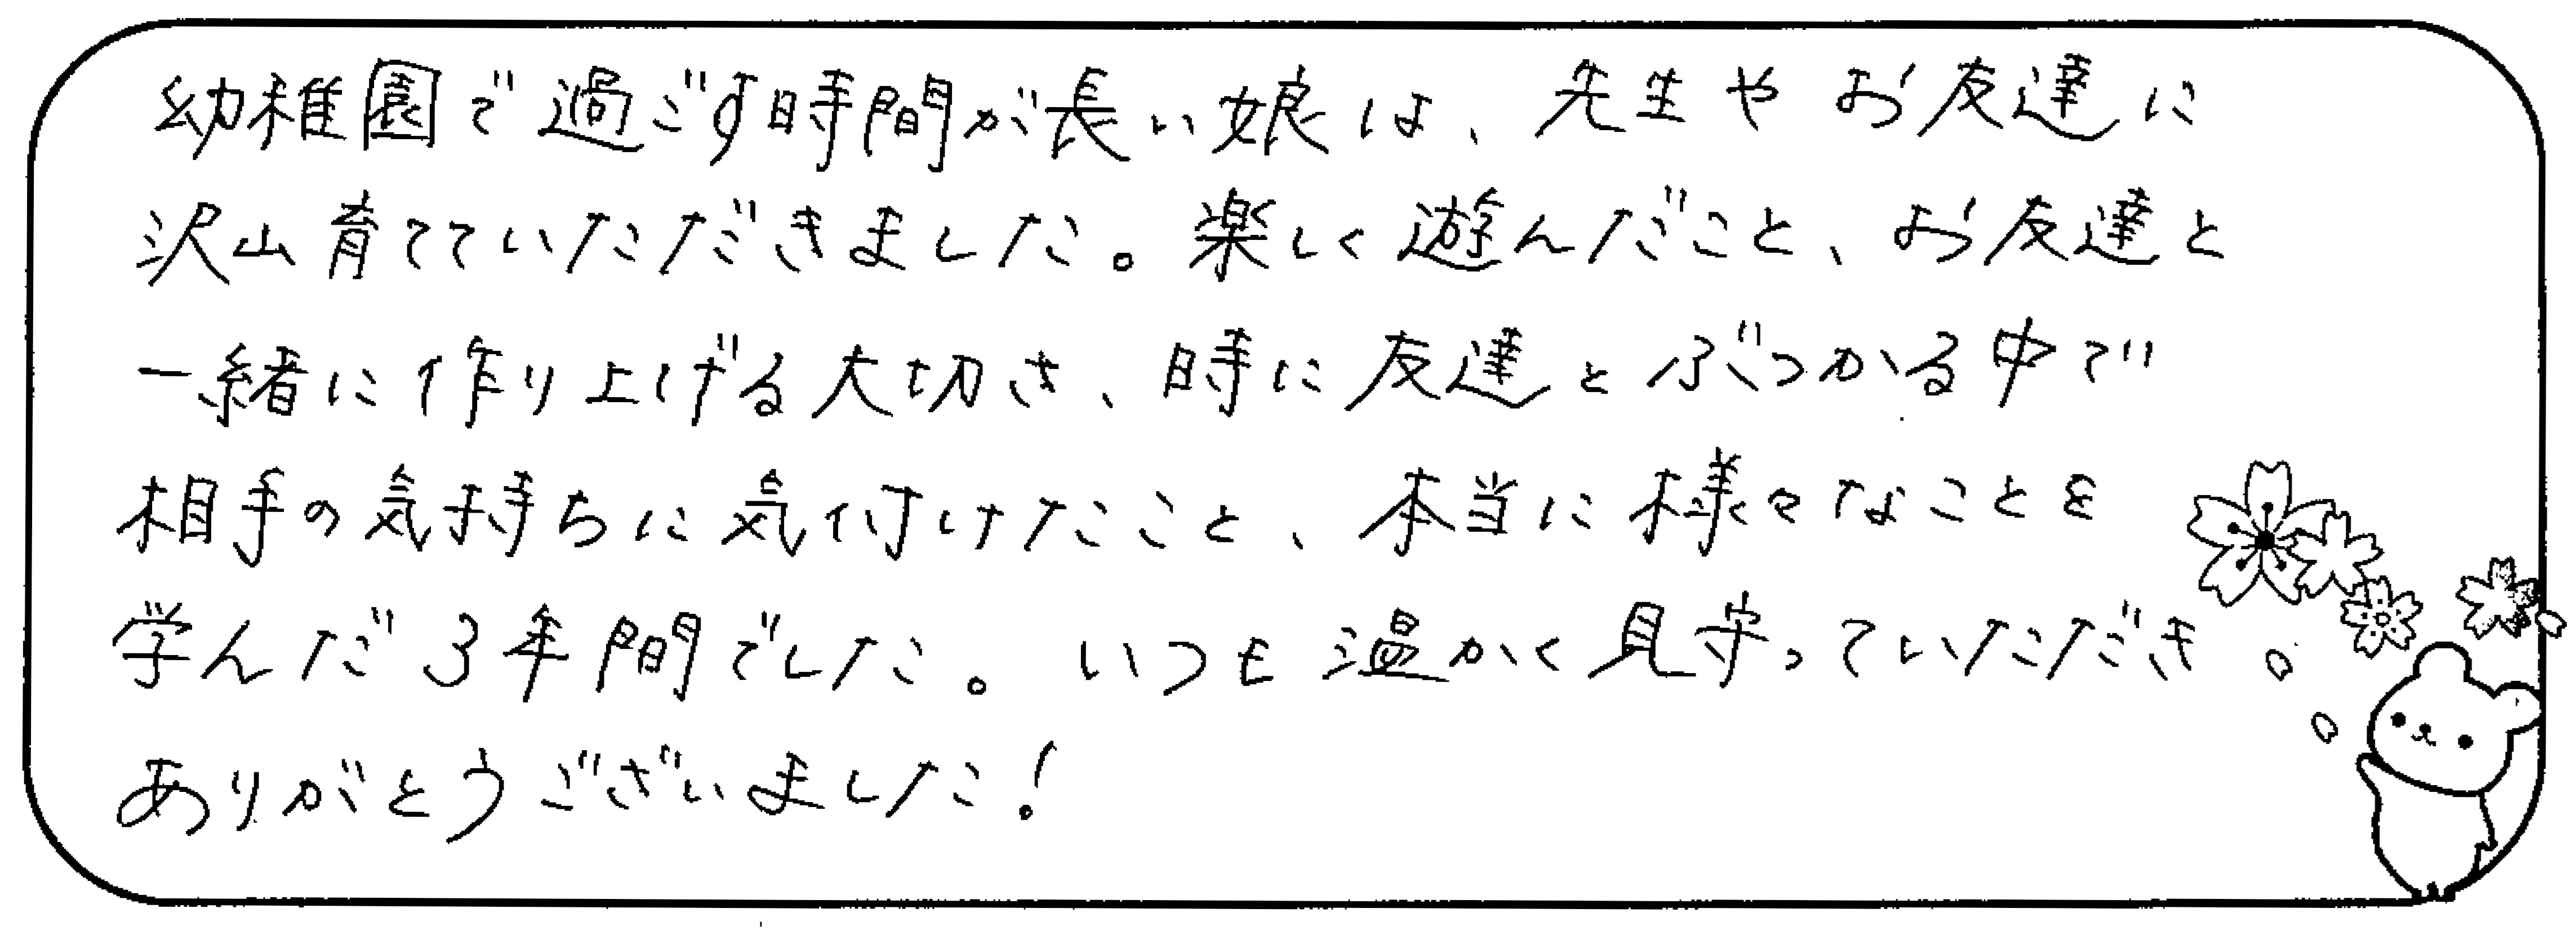 幼稚園で過ごす時間が長い娘は、先生やお友達に
沢山育てていただきました。楽しく遊んだこと、お友達と
一緒に作り上げる大切さ、時に友達とぶつかる中で
相手の気持ちに気付けたこと、本当に様々なことを
学んだ3年間でした。いつも温かく見守っていただき
ありがとうございました!